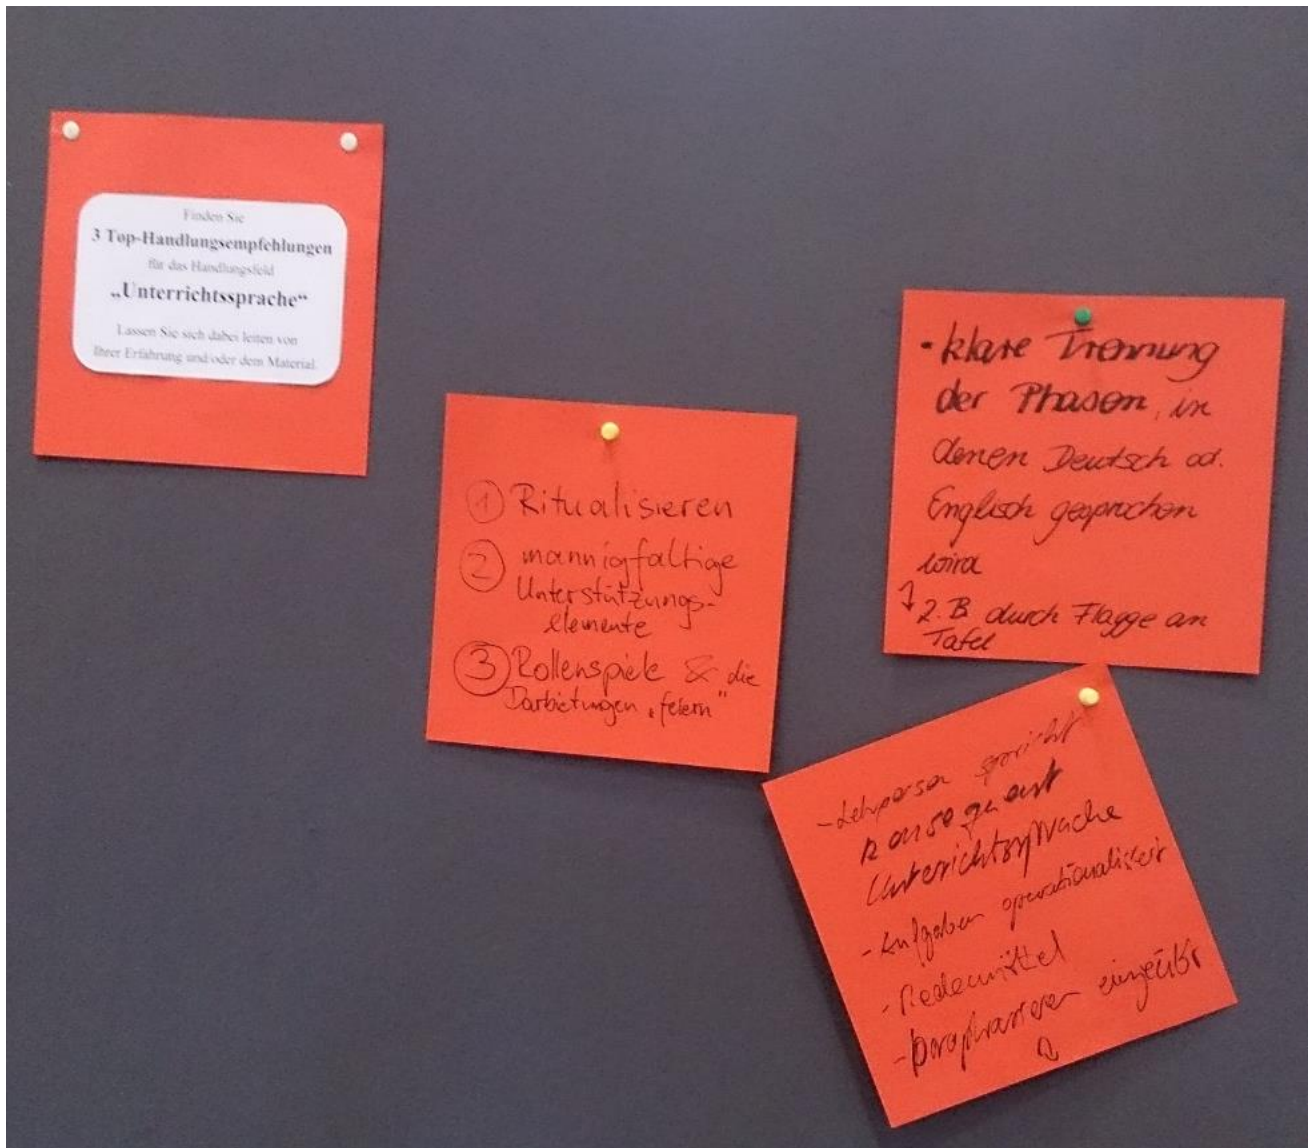 Finden Sie
3 Top-Handlungsempfehlungen
für das Handlungsfeld
„Unterrichtssprache“
Lassen Sie sich dabei leiten von
Ihrer Erfahrung und/oder dem Material.
① Ritualisieren
② mannigfaltige
Unterstützungs-
elemente
③ Rollenspiele & die
Darbietungen „feiern“
• klare Trennung
der Phasen, in
denen Deutsch od.
Englisch gesprochen
wird
↳ z.B durch Flagge an
Tafel
- Lehrperson spricht
konsequent
Unterrichtssprache
- Aufgaben operationalisiert
- Redemittel
- paraphrasieren eingeübt